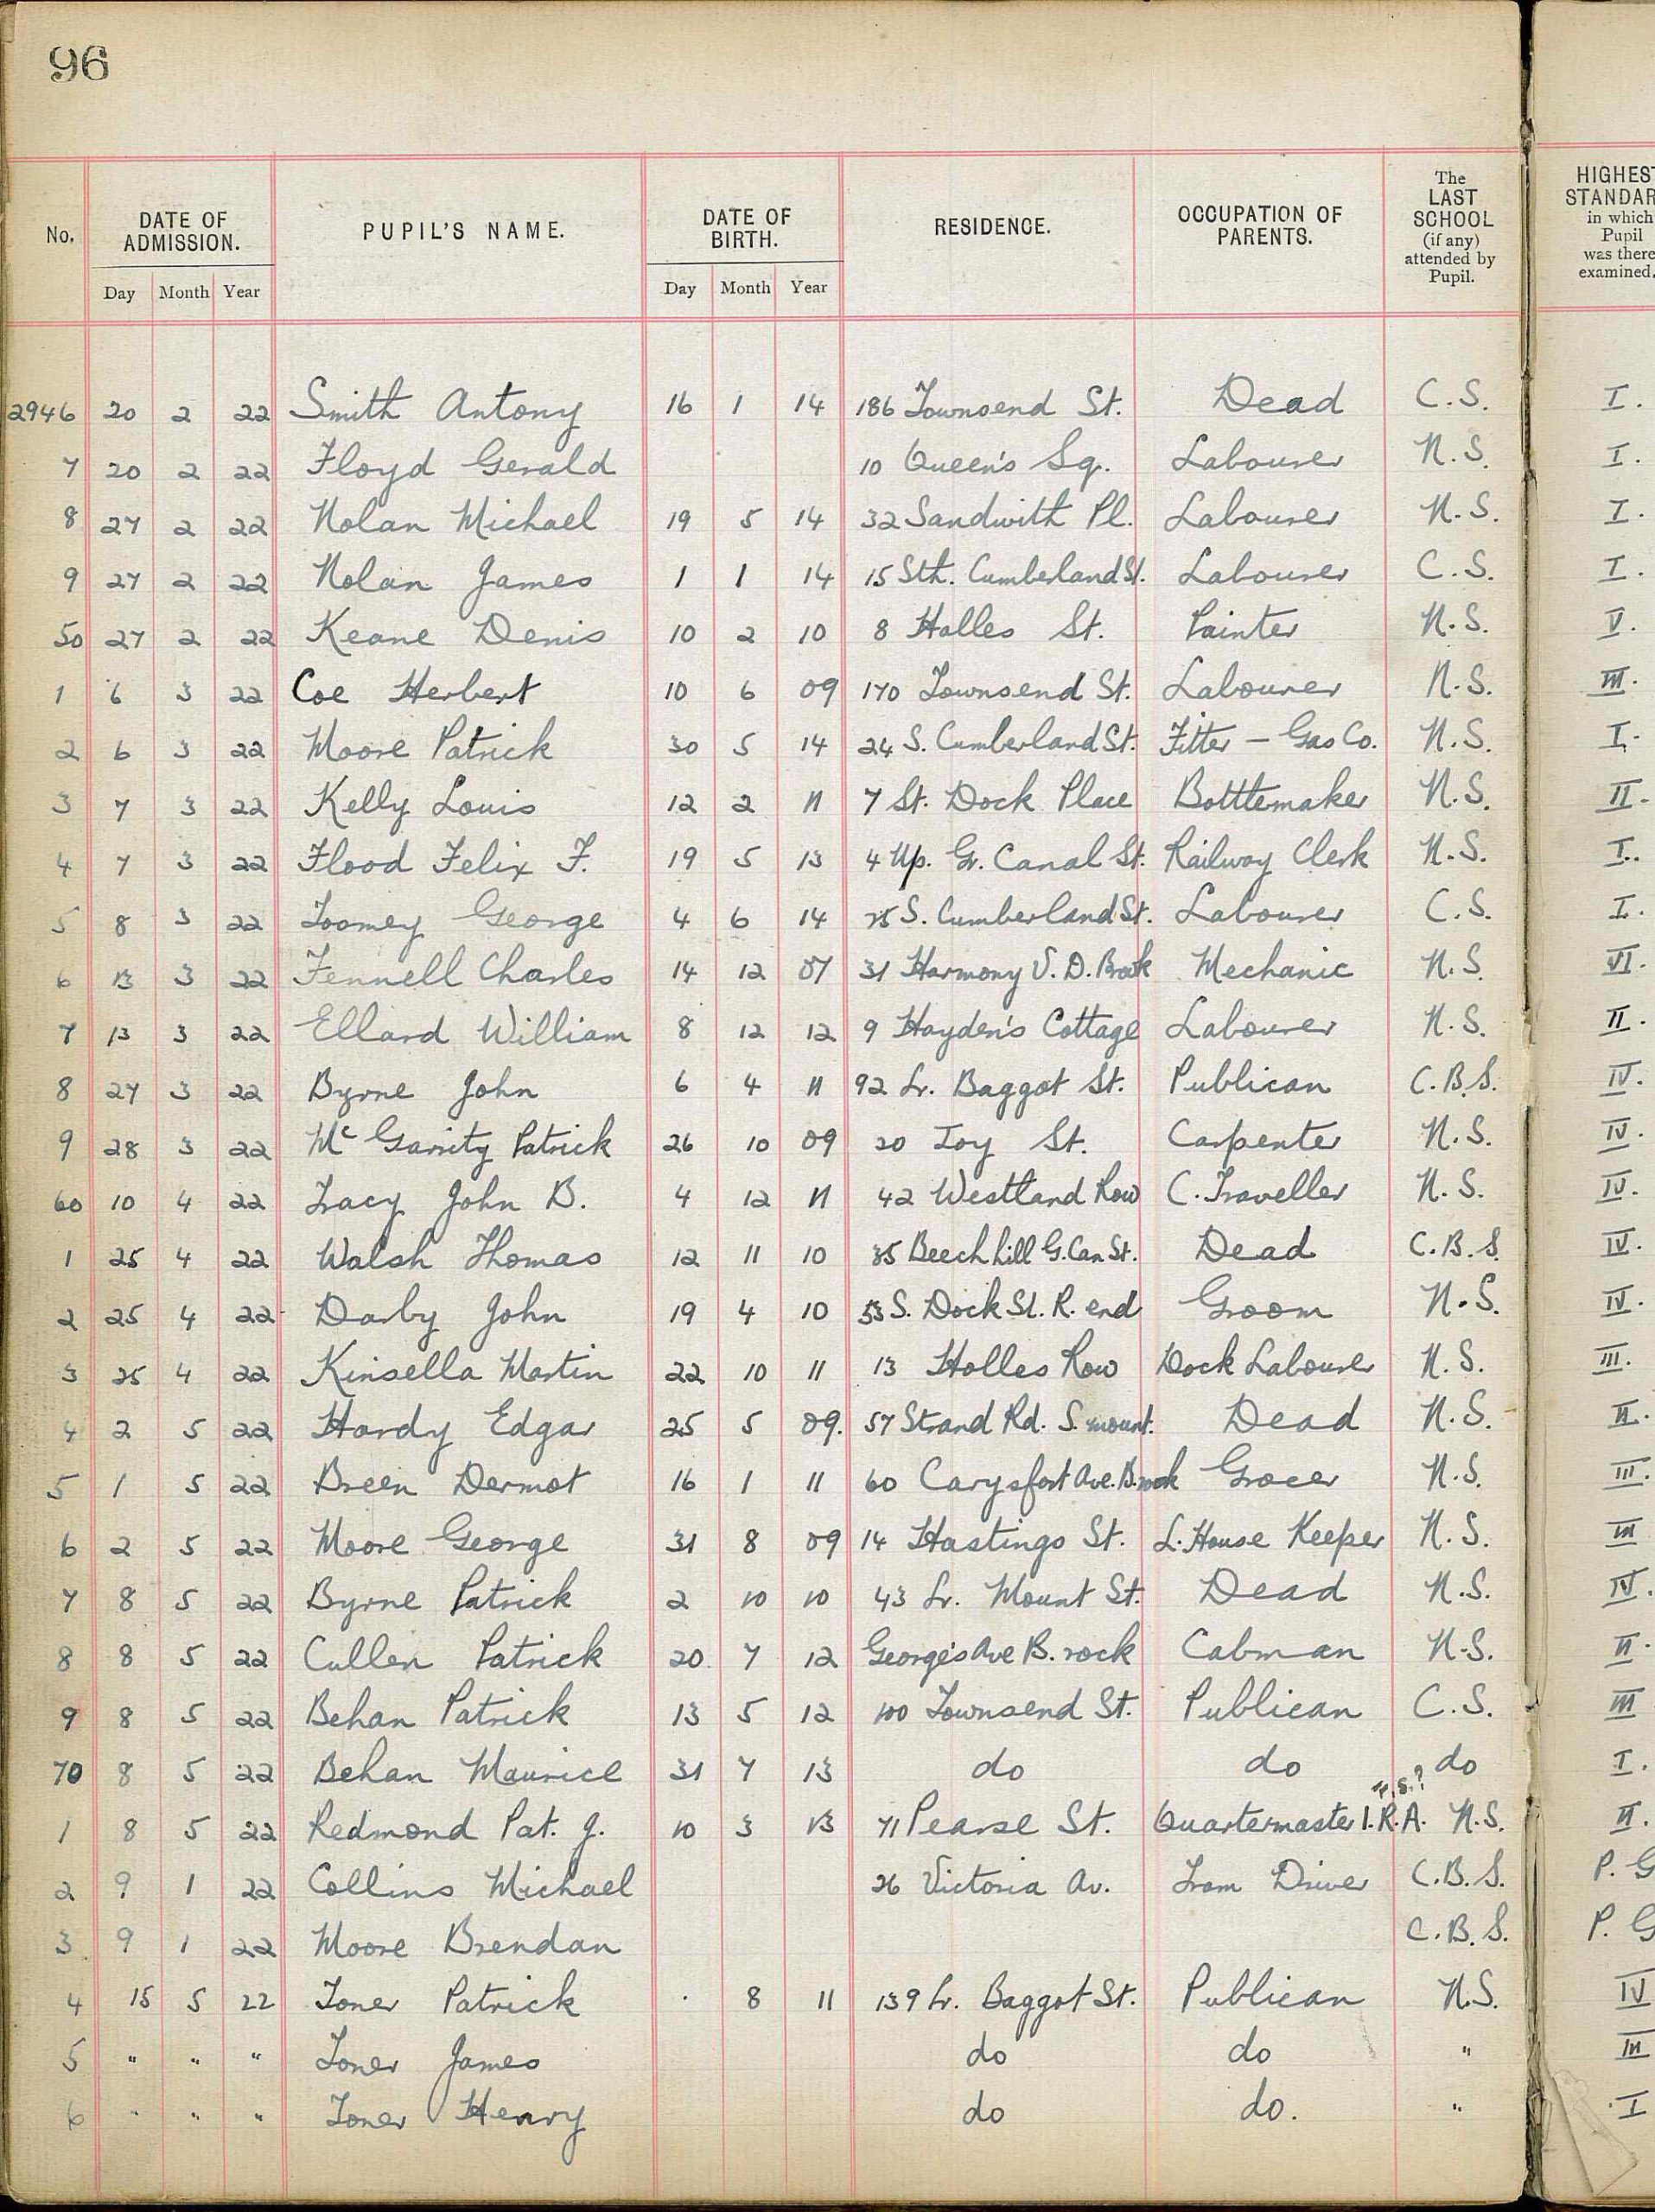 96
No. DATE OF ADMISSION. PUPIL'S NAME. DATE OF BIRTH. RESIDENCE. OCCUPATION OF PARENTS. The LAST SCHOOL (if any) attended by Pupil. HIGHEST STANDAR in which Pupil was there examined.
Day Month Year Day Month Year
2946 20 2 22 Smith Antony 16 1 14 186 Townsend St. Dead C.S. I.
7 20 2 22 Floyd Gerald 10 Queen's Sq. Labourer N.S. I.
8 27 2 22 Nolan Michael 19 5 14 32 Sandwith Pl. Labourer N.S. I.
9 27 2 22 Nolan James 1 1 14 15 Sth. Cumberland St. Labourer C.S. I.
50 27 2 22 Keane Denis 10 2 10 8 Holles St. Painter N.S. V.
1 6 3 22 Coe Herbert 10 6 09 170 Townsend St. Labourer N.S. III.
2 6 3 22 Moore Patrick 30 5 14 24 S. Cumberland St. Fitter – Gas Co. N.S. I.
3 7 3 22 Kelly Louis 12 2 11 7 St. Dock Place Bottlemaker N.S. II.
4 7 3 22 Flood Felix F. 19 5 13 4 Up. Gr. Canal St. Railway Clerk N.S. I.
5 8 3 22 Toomey George 4 6 14 25 S. Cumberland St. Labourer C.S. I.
6 13 3 22 Fennell Charles 14 12 07 31 Harmony V. D. Brook Mechanic N.S. VI.
7 13 3 22 Ellard William 8 12 12 9 Hayden's Cottage Labourer N.S. II.
8 27 3 22 Byrne John 6 4 11 92 Lr. Baggot St. Publican C.B.S. IV.
9 28 3 22 Mc Garrity Patrick 26 10 09 20 Joy St. Carpenter N.S. IV.
60 10 4 22 Tracy John B. 4 12 11 42 Westland Row C. Traveller N.S. IV.
1 25 4 22 Walsh Thomas 12 11 10 35 Beech hill G. Can St. Dead C.B.S. IV.
2 25 4 22 Darby John 19 4 10 53 S. Dock St. R. end Groom N.S. IV.
3 25 4 22 Kinsella Martin 22 10 11 13 Holles Row Dock Labourer N.S. III.
4 2 5 22 Hardy Edgar 25 5 09. 57 Strand Rd. S. mount. Dead N.S. II.
5 1 5 22 Breen Dermot 16 1 11 60 Carysfort Ave. B.rock Grocer N.S. III.
6 2 5 22 Moore George 31 8 09 14 Hastings St. L. House Keeper N.S. III
7 8 5 22 Byrne Patrick 2 10 10 43 Lr. Mount St. Dead N.S. IV.
8 8 5 22 Cullen Patrick 20 7 12 George's Ave B.rock Cabman N.S. II.
9 8 5 22 Behan Patrick 13 5 12 100 Townsend St. Publican C.S. III
70 8 5 22 Behan Maurice 31 7 13 do do do I.
1 8 5 22 Redmond Pat. J. 10 3 13 71 Pearse St. Quartermaster I.R.A. N.S. II.
2 9 1 22 Collins Michael 26 Victoria Av. Tram Driver C.B.S. P. G
3 9 1 22 Moore Brendan C.B.S. P. G
4 15 5 22 Toner Patrick 8 11 139 Lr. Baggot St. Publican N.S. IV
5 " " " Toner James do do " III
6 " " " Toner Henry do do. " I